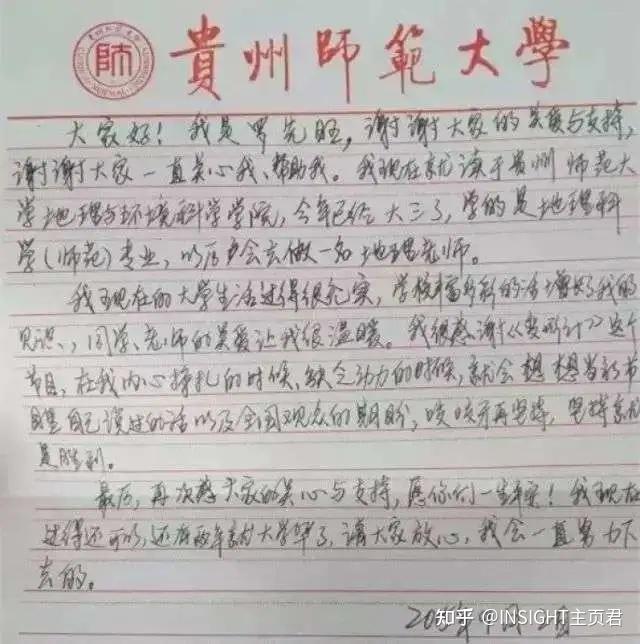 貴州師範大學
大家好！我是罗先旺，谢谢大家的关爱与支持，
谢谢大家一直关心我、帮助我。我现在就读于贵州师范大
学地理与环境科学学院，今年已经大三了，学的是地理科
学(师范)专业，以后会去做一名地理老师。
我现在的大学生活过得很充实，学校丰富多彩的活动增长我的
见识，同学、老师的关爱让我很温暖。我很感谢《变形计》这个
节目，在我内心挣扎的时候、缺乏动力的时候，就会想想当初节
目里自己说过的话以及全国观众的期盼，咬咬牙再坚持，坚持就
是胜利。
最后，再次感大家的关心与支持，愿你们一生平安！我现在
过得还可以，还有两年就大学毕业了，请大家放心，我会一直努力下
去的。
知乎 @INSIGHT主页君